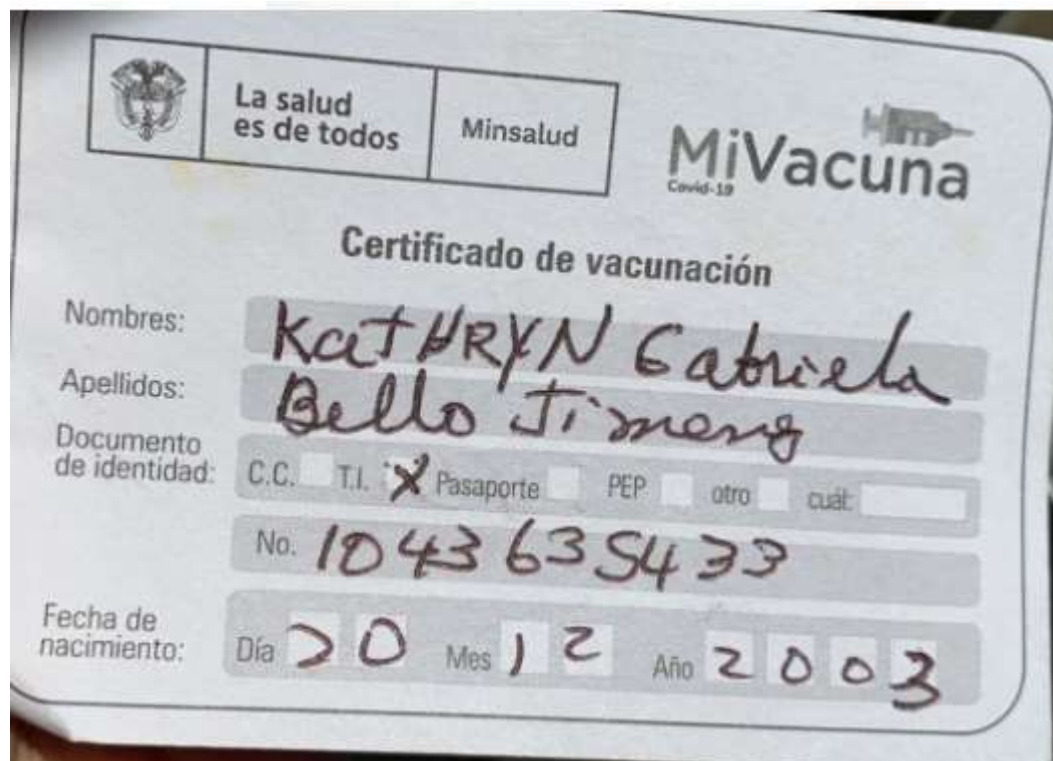 La salud
es de todos
Minsalud
MiVacuna
Covid-19
Certificado de vacunación
Nombres: KatHRYN Gabriela
Apellidos: Bello Jimeno
Documento
de identidad: C.C. T.I. X Pasaporte PEP otro cuál:
No. 1043635433
Fecha de
nacimiento: Día 20 Mes 12 Año 2003